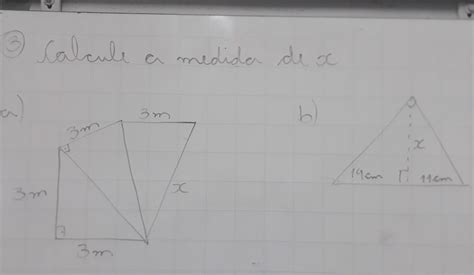 ③ Calcule a medida de x
a)
3m
3m
3m
x
3m
b)
x
14cm
14cm